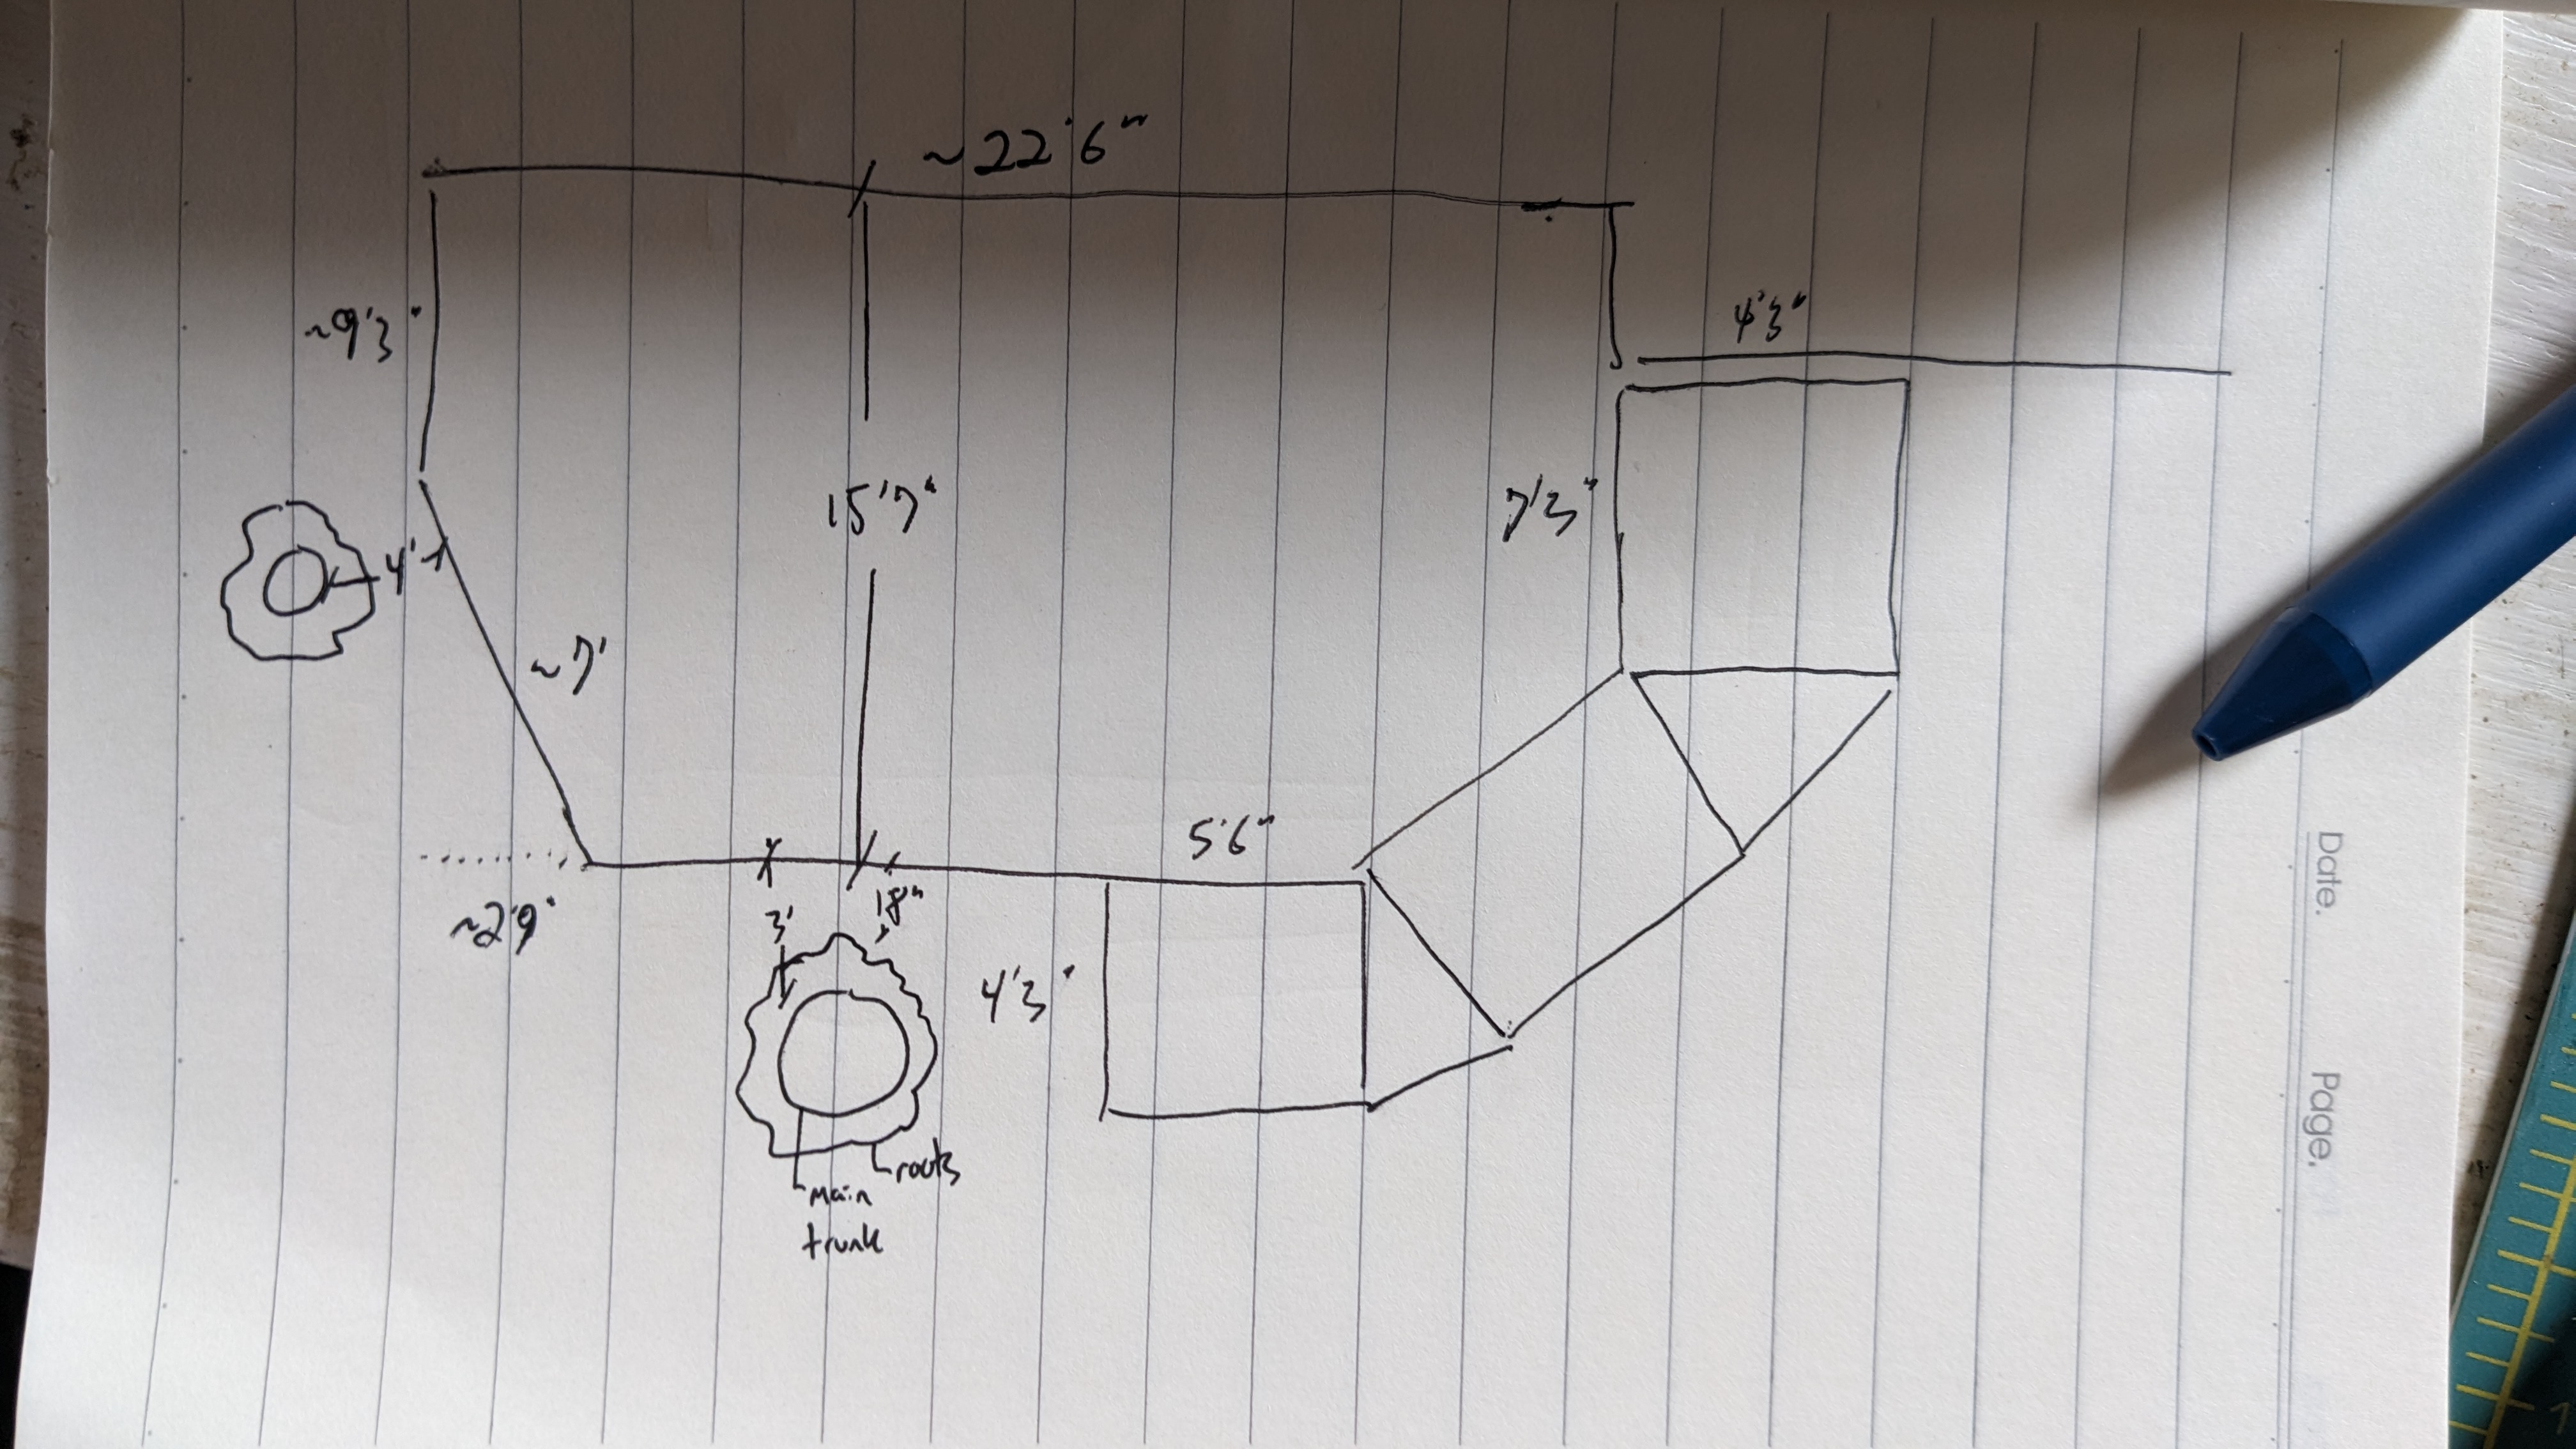 ~22'6"
4'3"
~9'3"
15'7"
7'3"
4'
~7'
5'6"
~2'9"
3'
18"
4'3"
roots
main
trunk
Date.
Page.